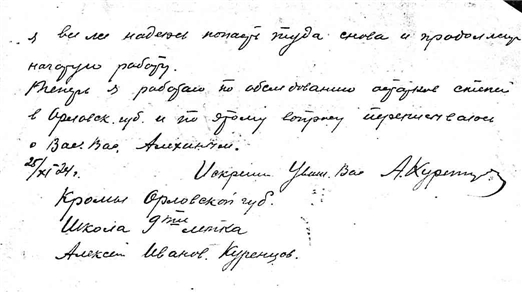 я все же надеюсь попасть туда снова и продолжить
начатую работу.
Теперь я работаю по обследованию остатков степей
в Орловск. губ. и по этому вопросу переписываюсь
с Вас. Вас. Алехиным.
25/XI 24 г. Искренно Уваж. Вас А. Куренцов
Кромы Орловской губ.
Школа 9ти летка
Алексей Иванов. Куренцов.